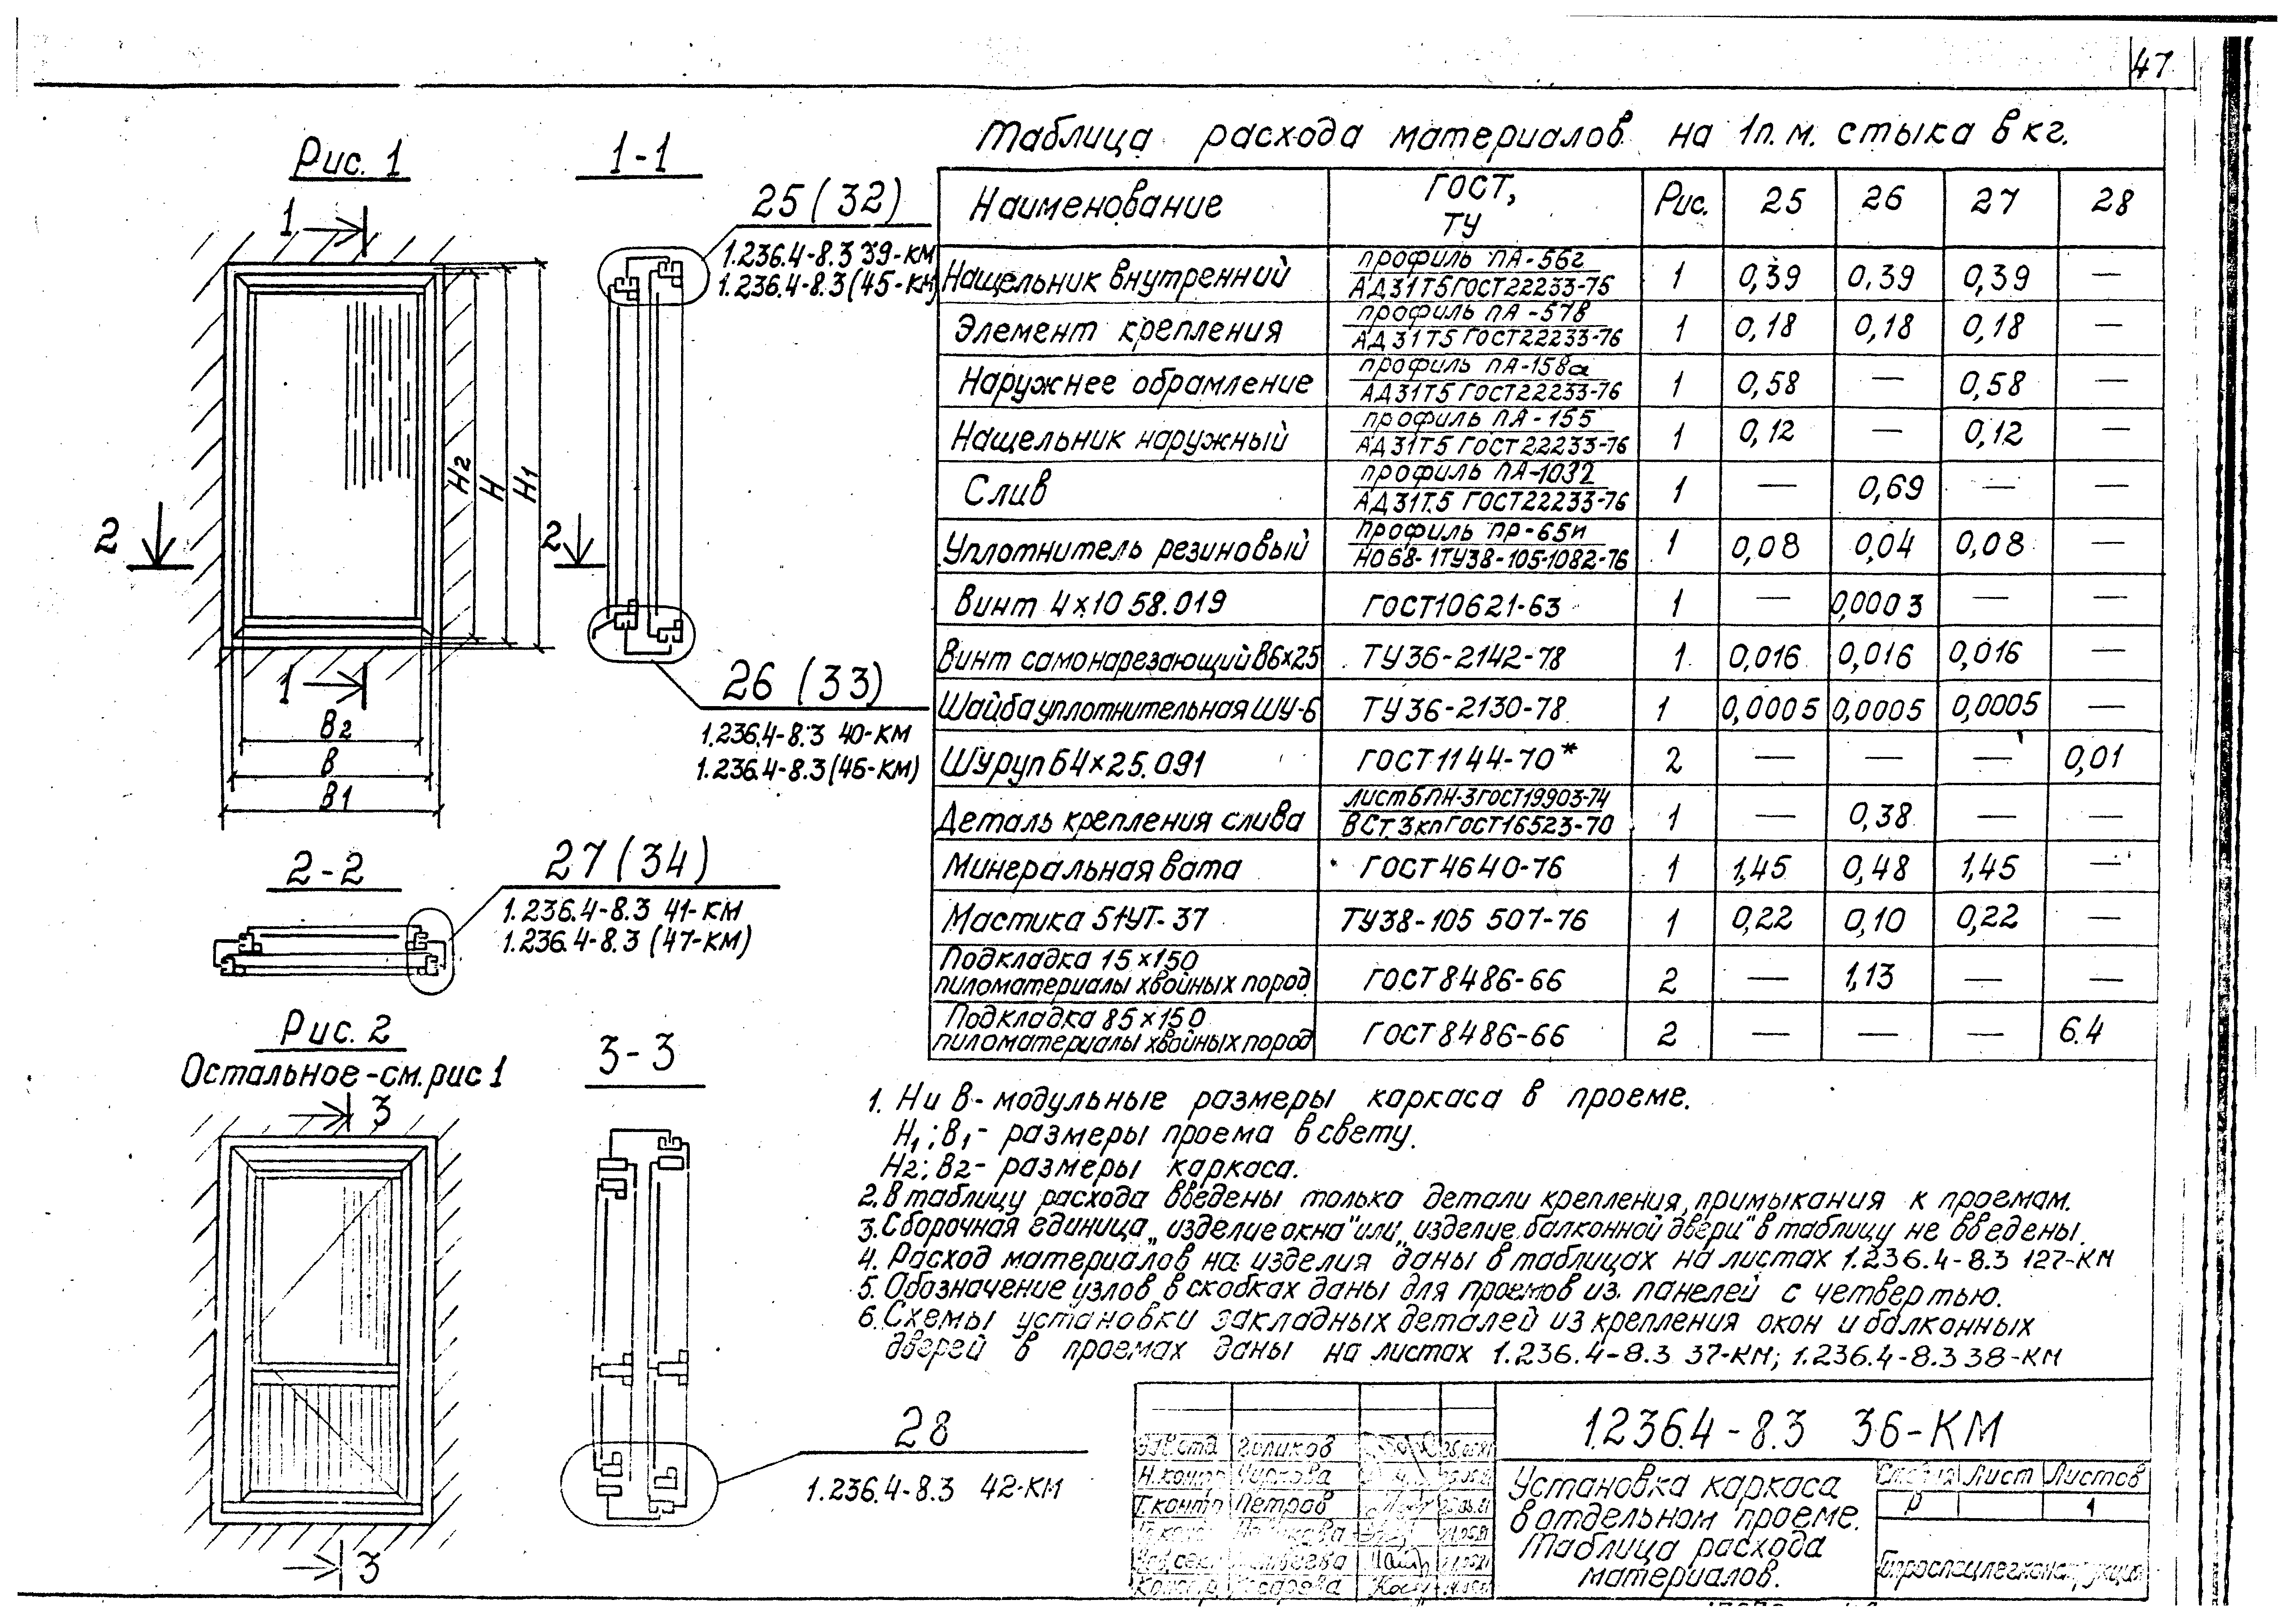 47
Рис. 1
1-1
1
25 (32)
1.236.4-8.3 39-КМ
1.236.4-8.3 (45-КМ)
H2
H
H1
2
2
1
26 (33)
1.236.4-8.3 40-КМ
1.236.4-8.3 (46-КМ)
В2
В
В1
2-2
27 (34)
1.236.4-8.3 41-КМ
1.236.4-8.3 (47-КМ)
Рис. 2
Остальное-см. рис 1
3-3
3
3
28
1.236.4-8.3 42-КМ
Таблица расхода материалов на 1п.м. стыка в кг.
Наименование ГОСТ, ТУ Рис. 25 26 27 28
Нащельник внутренний профиль ПА-56г АД31Т5 ГОСТ22233-76 1 0,39 0,39 0,39 —
Элемент крепления профиль ПА-57в АД31Т5 ГОСТ22233-76 1 0,18 0,18 0,18 —
Наружнее обрамление профиль ПА-158а АД31Т5 ГОСТ22233-76 1 0,58 — 0,58 —
Нащельник наружный профиль ПА-155 АД31Т5 ГОСТ22233-76 1 0,12 — 0,12 —
Слив профиль ПА-1032 АД31Т.5 ГОСТ22233-76 1 — 0,69 — —
Уплотнитель резиновый профиль ПР-65и НО68-1ТУ38-105-1082-76 1 0,08 0,04 0,08 —
Винт 4×10 58.019 ГОСТ10621-63 1 — 0,0003 — —
Винт самонарезающий В6×25 ТУ36-2142-78 1 0,016 0,016 0,016 —
Шайба уплотнительная ШУ-6 ТУ36-2130-78 1 0,0005 0,0005 0,0005 —
Шуруп 64×25.091 ГОСТ1144-70* 2 — — — 0,01
Деталь крепления слива лист БПН-3 ГОСТ19903-74 ВСт.3кп ГОСТ16523-70 1 — 0,38 — —
Минеральная вата ГОСТ4640-76 1 1,45 0,48 1,45 —
Мастика 51УТ-37 ТУ38-105 507-76 1 0,22 0,10 0,22 —
Подкладка 15×150 пиломатериалы хвойных пород ГОСТ8486-66 2 — 1,13 — —
Подкладка 85×150 пиломатериалы хвойных пород ГОСТ8486-66 2 — — — 6.4
1. Н и В - модульные размеры каркаса в проеме.
Н1; В1- размеры проема в свету.
Н2; В2- размеры каркаса.
2. В таблицу расхода введены только детали крепления, примыкания к проемам.
3. Сборочная единица „изделие окна" или „изделие балконной двери" в таблицу не введены.
4. Расход материалов на изделия даны в таблицах на листах 1.236.4-8.3 127-КМ
5. Обозначение узлов в скобках даны для проемов из панелей с четвертью.
6. Схемы установки закладных деталей из крепления окон и балконных
дверей в проемах даны на листах 1.236.4-8.3 37-КМ; 1.236.4-8.3 38-КМ
1.236.4-8.3 36-КМ
Установка каркаса
в отдельном проеме.
Таблица расхода
материалов.
Стадия Лист Листов
Р 1
Зав.отд. Голиков
Н.контр
Т.контр Петров